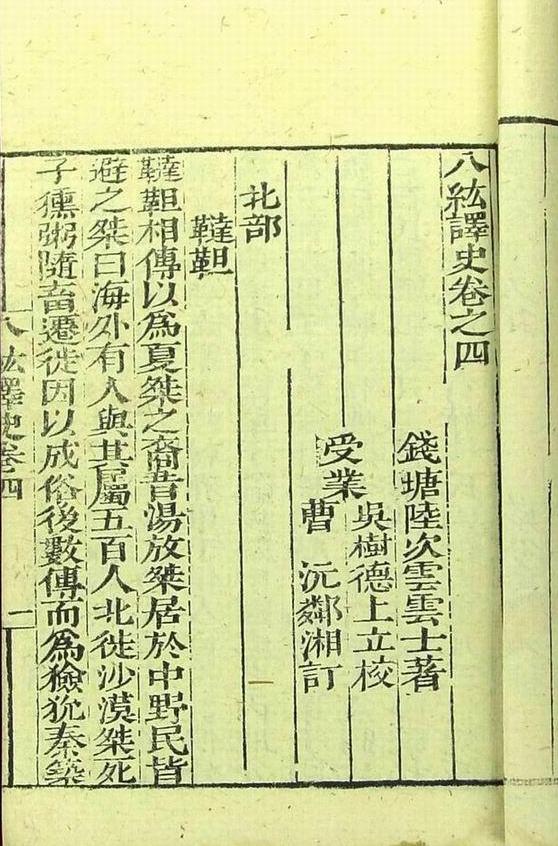 八紘譯史卷之四
錢塘陸次雲雲士著
受業
吳樹德上立校
曹　沅鄰湘訂
北部
韃靼
韃靼相傳以爲夏桀之裔昔湯放桀居於中野民皆
避之桀曰海外有人與其屬五百人北徙沙漠桀死
子獯粥隨畜遷徙因以成俗後數傳而爲獫狁秦築
八紘譯史卷四
一